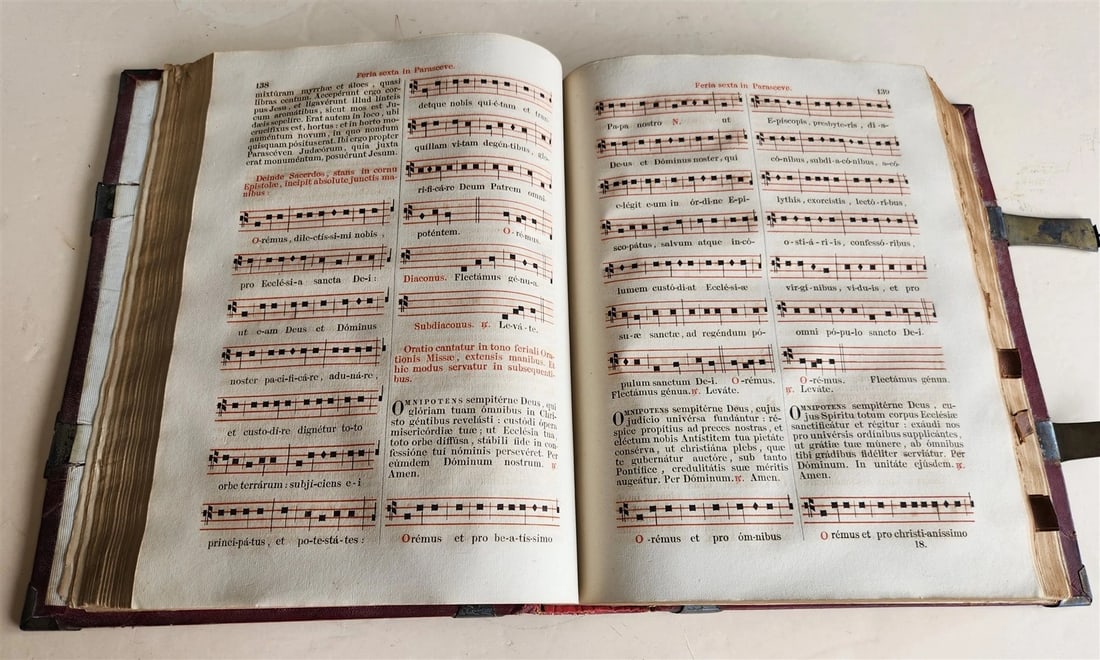 138
Feria sexta in Parasceve.
mixtúram myrrhæ et áloes, quasi
libras centum. Accepérunt ergo cor-
pus Jesu, et ligavérunt illud línteis
cum aromátibus, sicut mos est Ju-
dæis sepelíre. Erat autem in loco, ubi
crucifíxus est, hortus: et in horto mo-
numéntum novum, in quo nondum
quisquam pósitus erat. Ibi ergo propter
Parascéven Judæórum, quia juxta
erat monuméntum, posuérunt Jesum.
Deinde Sacerdos, stans in cornu
Epistolæ, incipit absolute junctis ma-
nibus:
O-rémus, dile-ctís-si-mi nobis,
pro Ecclé-si-a sancta De-i:
ut e-am Deus et Dóminus
noster pa-ci-fi-cá-re, adu-ná-re,
et custo-dí-re dignétur to-to
orbe terrárum: subji-ciens e-i
princi-pá-tus, et po-te-stá-tes:
detque nobis qui-é-tam et tran-
quíllam vi-tam degén-tibus, glo-
ri-fi-cá-re Deum Patrem omni-
poténtem. O-ré-mus.
Diaconus. Flectámus gé-nu-a.
Subdiaconus. ℟. Le-vá-te.
Oratio cantatur in tono feriali Ora-
tionis Missæ, extensis manibus. Et
hic modus servatur in subsequenti-
bus.
OMNIPOTENS sempitérne Deus, qui
glóriam tuam ómnibus in Chri-
sto géntibus revelásti: custódi ópera
misericórdiæ tuæ; ut Ecclésia tua,
toto orbe diffúsa, stábili fide in con-
fessióne tui nóminis persevéret. Per
eúmdem Dóminum nostrum. ℟.
Amen.
Orémus et pro be-a-tís-simo
Feria sexta in Parasceve.
139
Pa-pa nostro N. ut
De-us et Dóminus noster, qui
e-légit e-um in ór-di-ne E-pi-
sco-pátus, salvum atque in-có-
lumem custó-di-at Ecclé-si-æ
su-æ sanctæ, ad regéndum pó-
pulum sanctum De-i. O-rémus.
Flectámus génua. ℟. Leváte.
OMNIPOTENS sempitérne Deus, cujus
judício univérsa fundántur: ré-
spice propítius ad preces nostras, et
eléctum nobis Antístitem tua pietáte
consérva, ut christiána plebs, quæ
te gubernátur auctóre, sub tanto
Pontífice, credulitátis suæ méritis
augeátur. Per Dóminum. ℟. Amen.
O-rémus et pro óm-nibus
E-píscopis, presbýte-ris, di-á-
có-nibus, subdi-a-có-nibus, a-có-
lythis, exorcístis, lectó-ri-bus,
o-sti-á-ri-is, confessó-ribus,
vir-gí-nibus, ví-du-is, et pro
omni pó-pu-lo sancto De-i.
O-ré-mus. Flectámus génua.
℟. Leváte.
OMNIPOTENS sempitérne Deus, cu-
jus Spíritu totum corpus Ecclésiæ
sanctificátur et régitur: exáudi nos
pro univérsis ordínibus supplicántes,
ut grátiæ tuæ múnere, ab ómnibus
tibi grádibus fidéliter serviátur. Per
Dóminum. In unitáte ejúsdem. ℟.
Amen.
Orémus et pro christi-aníssimo
18.